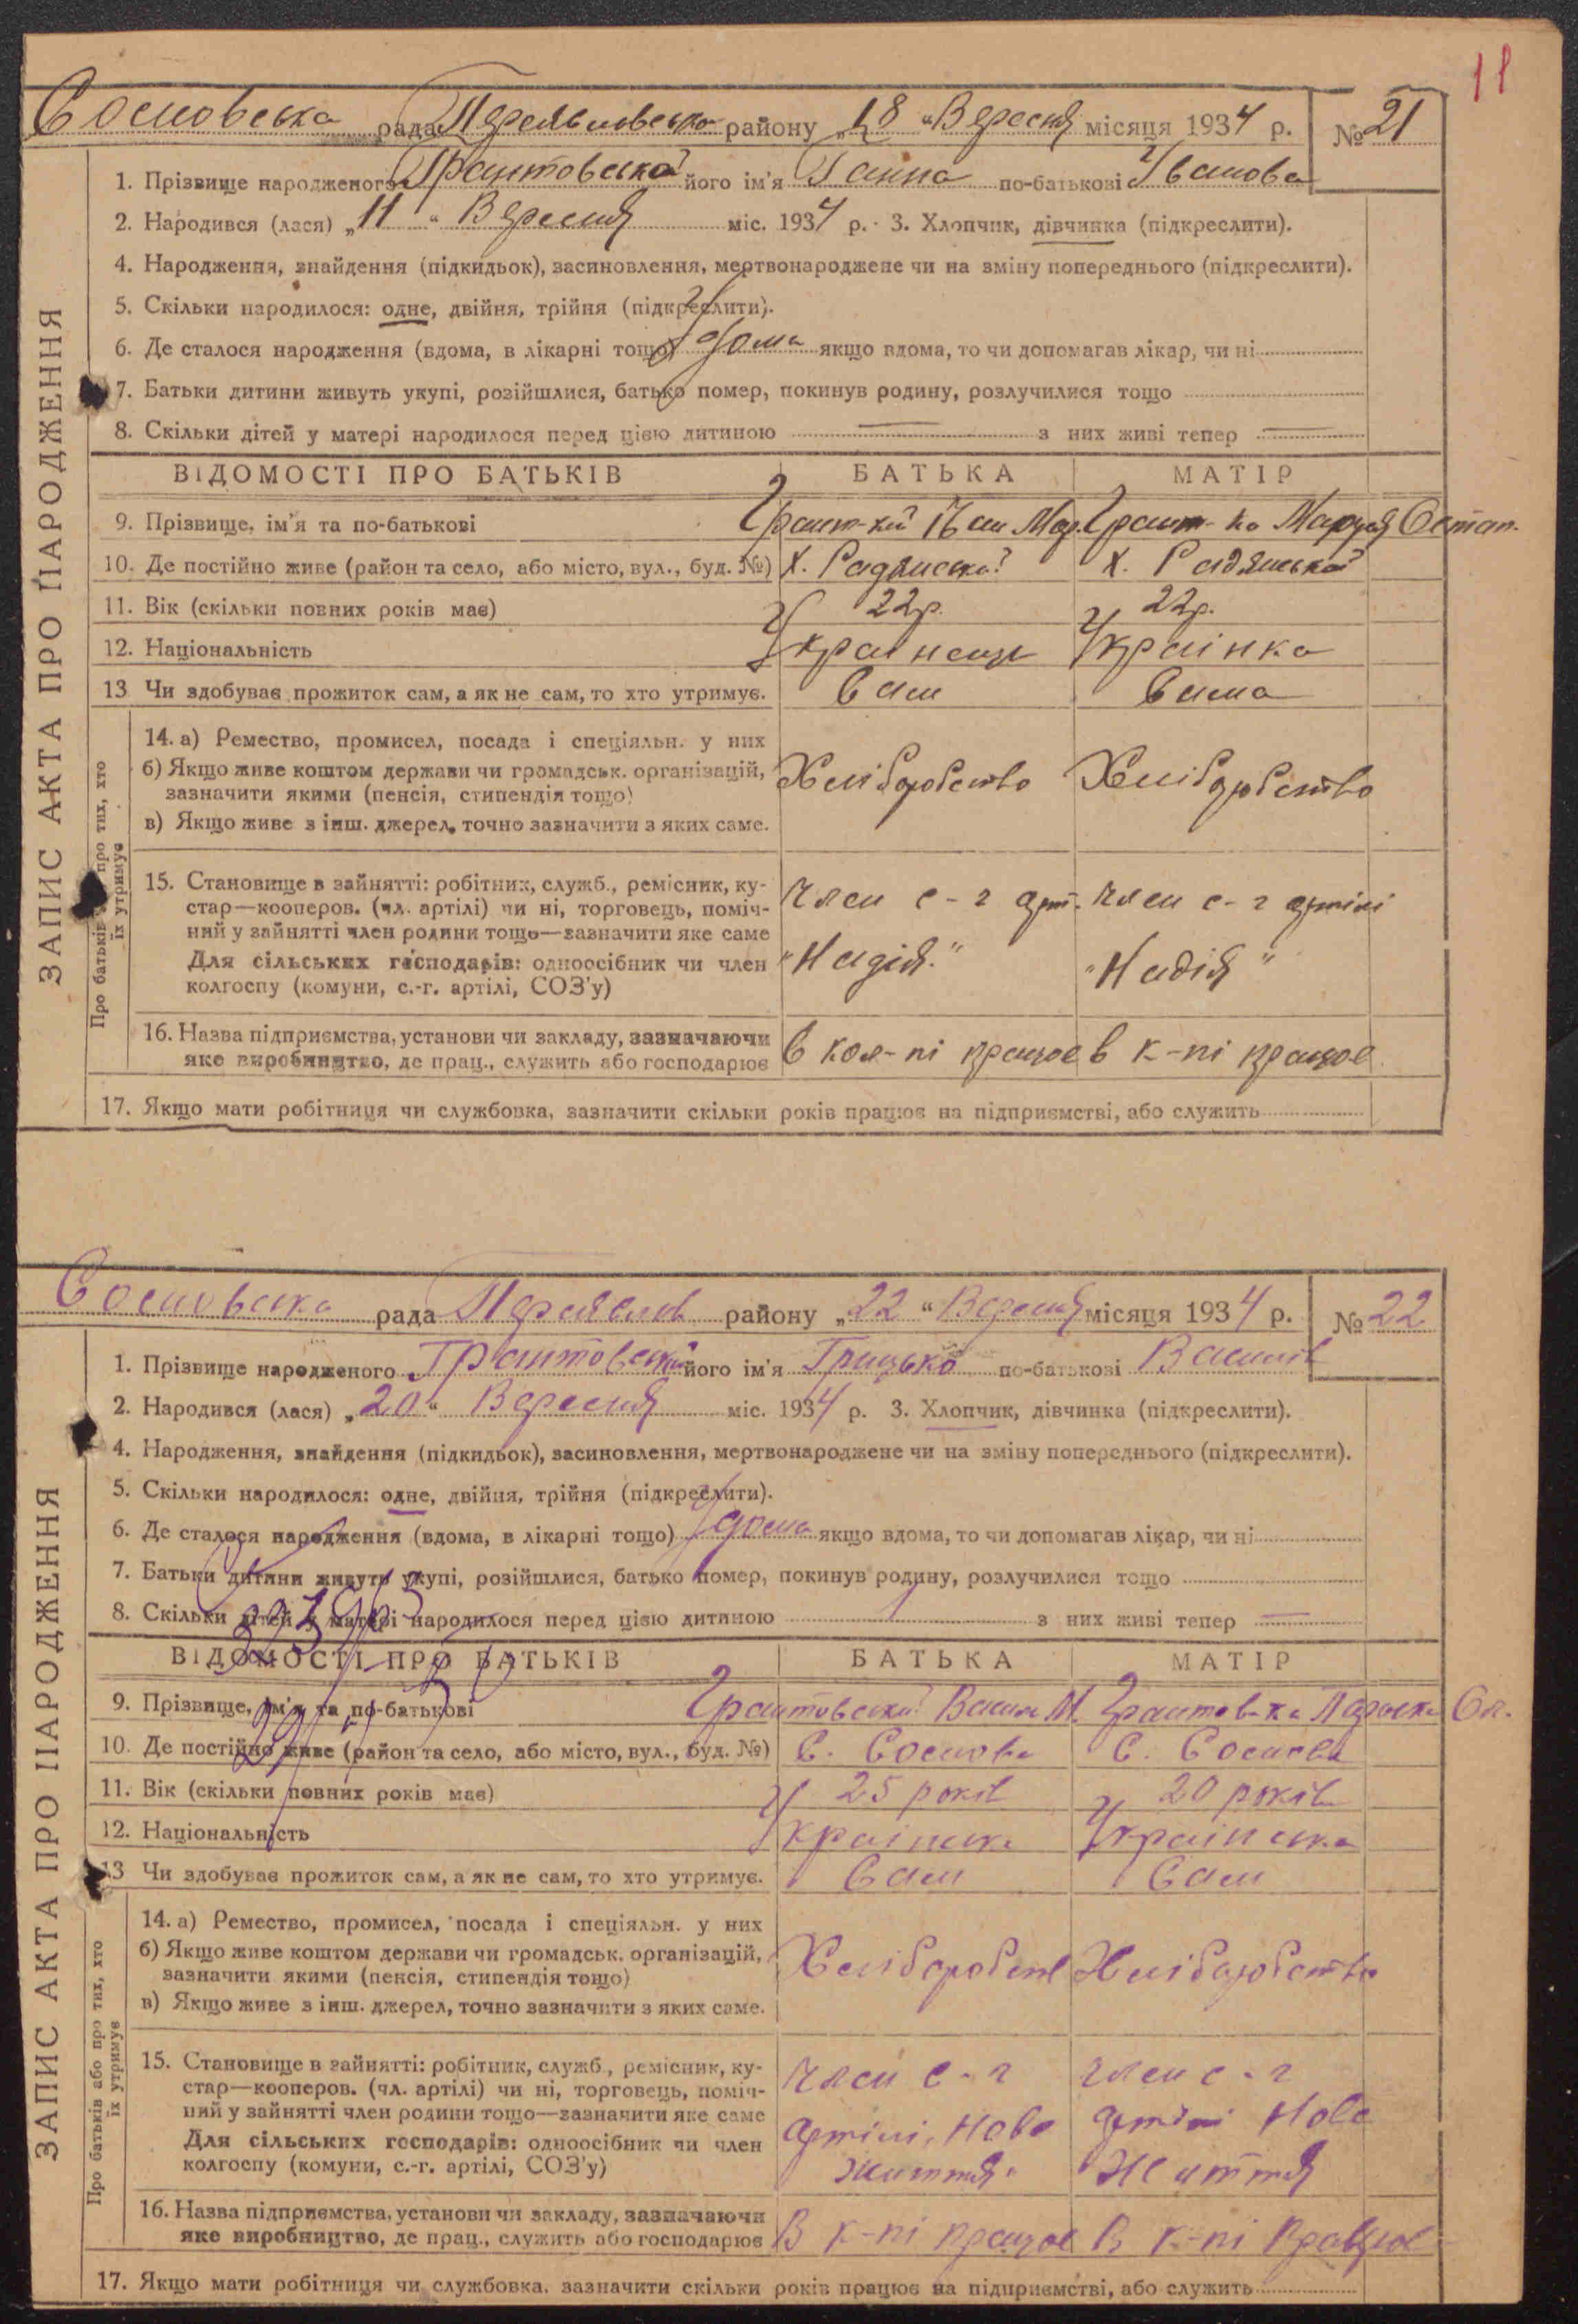 11
Сосновська рада Переяславська району „18“ Вересня місяця 1934 р. № 21
1. Прізвище народженого Грантовська його ім'я Ганна по-батькові Іванова
2. Народився (лася) „11“ Вересня міс. 1934 р. 3. Хлопчик, дівчинка (підкреслити).
4. Народження, знайдення (підкидьок), засиновлення, мертвонароджене чи на зміну попереднього (підкреслити).
5. Скільки народилося: одне, двійня, трійня (підкреслити).
6. Де сталося народження (вдома, в лікарні тощо) Удома якщо вдома, то чи допомагав лікар, чи ні
7. Батьки дитини живуть укупі, розійшлися, батько помер, покинув родину, розлучилися тощо
8. Скільки дітей у матері народилося перед цією дитиною — з них живі тепер —
ВІДОМОСТІ ПРО БАТЬКІВ БАТЬКА МАТІР
9. Прізвище, ім'я та по-батькові Грант-кий Іван Мар. Грант-ка Маруся Остап.
10. Де постійно живе (район та село, або місто, вул., буд. №) Х. Радянський Х. Радянський
11. Вік (скільки повних років має) 22р. 22р.
12. Національність Українець Українка
13 Чи здобуває прожиток сам, а як не сам, то хто утримує. Сам Сама
14. а) Ремество, промисел, посада і спеціяльн. у них
б) Якщо живе коштом держави чи громадськ. організацій,
зазначити якими (пенсія, стипендія тощо) Хліборобство Хліборобство
в) Якщо живе з інш. джерел, точно зазначити з яких саме.
15. Становище в зайнятті: робітник, служб., ремісник, ку-
стар—кооперов. (чл. артілі) чи ні, торговець, поміч- член с-г арт. член с-г артілі
ний у зайнятті член родини тощо—зазначити яке саме
Для сільських господарів: одноосібник чи член „Надія" „Надія"
колгоспу (комуни, с.-г. артілі, СОЗ'у)
16. Назва підприємства, установи чи закладу, зазначаючи
яке виробництво, де прац., служить або господарює в кол-пі працює в к-пі працює
17. Якщо мати робітниця чи службовка, зазначити скільки років працює на підприємстві, або служить
ЗАПИС АКТА ПРО НАРОДЖЕННЯ
Про батьків про тих, хто
їх утримує
Сосновська рада Переяслав району „22“ Вересня місяця 1934 р. № 22
1. Прізвище народженого Грантовський його ім'я Грицько по-батькові Васильів
2. Народився (лася) „20“ Вересня міс. 1934 р. 3. Хлопчик, дівчинка (підкреслити).
4. Народження, знайдення (підкидьок), засиновлення, мертвонароджене чи на зміну попереднього (підкреслити).
5. Скільки народилося: одне, двійня, трійня (підкреслити).
6. Де сталося народження (вдома, в лікарні тощо) Удома якщо вдома, то чи допомагав лікар, чи ні
7. Батьки дитини живуть укупі, розійшлися, батько помер, покинув родину, розлучилися тощо
8. Скільки дітей у матері народилося перед цією дитиною 1 з них живі тепер —
ВІДОМОСТІ ПРО БАТЬКІВ БАТЬКА МАТІР
9. Прізвище, ім'я та по-батькові Грантовський Василь М. Грантов-ка
10. Де постійно живе (район та село, або місто, вул., буд. №) С. Соснова С. Соснова
11. Вік (скільки повних років має) 25 років 20 років
12. Національність Українська Українська
13 Чи здобуває прожиток сам, а як не сам, то хто утримує. Сам Сам
14. а) Ремество, промисел, посада і спеціяльн. у них
б) Якщо живе коштом держави чи громадськ. організацій,
зазначити якими (пенсія, стипендія тощо) Хліборобств Хліборобство
в) Якщо живе з інш. джерел, точно зазначити з яких саме.
15. Становище в зайнятті: робітник, служб., ремісник, ку- член с-г член с-г
стар—кооперов. (чл. артілі) чи ні, торговець, поміч-
ний у зайнятті член родини тощо—зазначити яке саме артілі, Нове артілі Нове
Для сільських господарів: одноосібник чи член
колгоспу (комуни, с.-г. артілі, СОЗ'у) Життя Життя
16. Назва підприємства, установи чи закладу, зазначаючи
яке виробництво, де прац., служить або господарює В к-пі працює В к-пі працює
17. Якщо мати робітниця чи службовка, зазначити скільки років працює на підприємстві, або служить
ЗАПИС АКТА ПРО НАРОДЖЕННЯ
Про батьків або про тих, хто
їх утримує